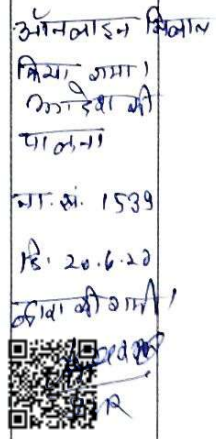 ऑनलाइन मिलान
किया गया।
आदेश की
पालना
ना. सं. 1539
दि. 20.6.20
की गयी।